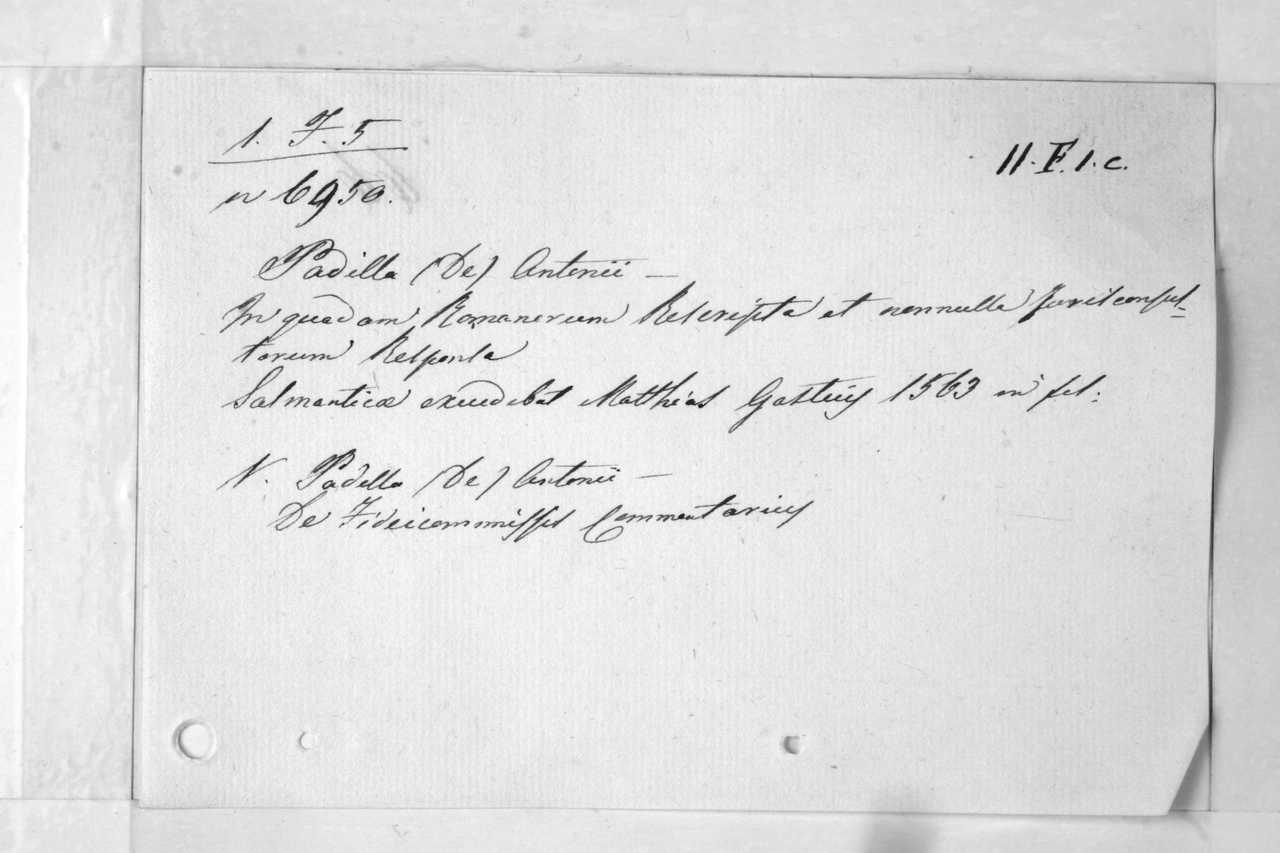 1. F. 5
II. F. 1. c.
n 6950.
Padilla (De) Antonii —
In quadam Romanorum Rescripta et nonnulla Jurisconsul=
torum Responsa
Salmanticæ excudebat Matthias Gastius 1563 in fol:
N. Padilla (De) Antonii —
De Fideicommissis Commentarius